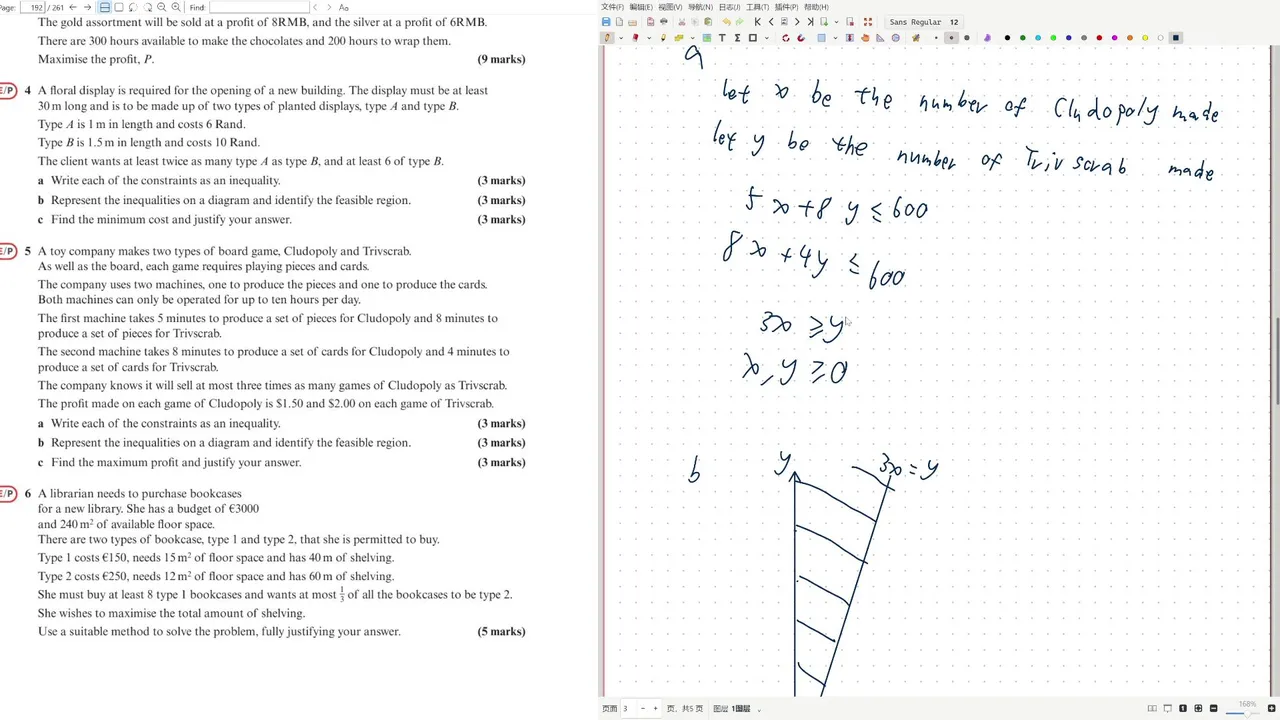 Page: 192 / 261 Find: Aa
The gold assortment will be sold at a profit of 8RMB, and the silver at a profit of 6RMB.
There are 300 hours available to make the chocolates and 200 hours to wrap them.
Maximise the profit, P. (9 marks)
E/P 4 A floral display is required for the opening of a new building. The display must be at least
30 m long and is to be made up of two types of planted displays, type A and type B.
Type A is 1 m in length and costs 6 Rand.
Type B is 1.5 m in length and costs 10 Rand.
The client wants at least twice as many type A as type B, and at least 6 of type B.
a Write each of the constraints as an inequality. (3 marks)
b Represent the inequalities on a diagram and identify the feasible region. (3 marks)
c Find the minimum cost and justify your answer. (3 marks)
E/P 5 A toy company makes two types of board game, Cludopoly and Trivscrab.
As well as the board, each game requires playing pieces and cards.
The company uses two machines, one to produce the pieces and one to produce the cards.
Both machines can only be operated for up to ten hours per day.
The first machine takes 5 minutes to produce a set of pieces for Cludopoly and 8 minutes to
produce a set of pieces for Trivscrab.
The second machine takes 8 minutes to produce a set of cards for Cludopoly and 4 minutes to
produce a set of cards for Trivscrab.
The company knows it will sell at most three times as many games of Cludopoly as Trivscrab.
The profit made on each game of Cludopoly is $1.50 and $2.00 on each game of Trivscrab.
a Write each of the constraints as an inequality. (3 marks)
b Represent the inequalities on a diagram and identify the feasible region. (3 marks)
c Find the maximum profit and justify your answer. (3 marks)
E/P 6 A librarian needs to purchase bookcases
for a new library. She has a budget of €3000
and 240 m² of available floor space.
There are two types of bookcase, type 1 and type 2, that she is permitted to buy.
Type 1 costs €150, needs 15 m² of floor space and has 40 m of shelving.
Type 2 costs €250, needs 12 m² of floor space and has 60 m of shelving.
She must buy at least 8 type 1 bookcases and wants at most 1/3 of all the bookcases to be type 2.
She wishes to maximise the total amount of shelving.
Use a suitable method to solve the problem, fully justifying your answer. (5 marks)
文件(F) 编辑(E) 视图(V) 导航(N) 日志(J) 工具(T) 插件(P) 帮助(H)
Sans Regular 12
a
let x be the number of Cludopoly made
let y be the number of Trivscrab made
5x+8y ≤ 600
8x+4y ≤ 600
3x ≥ y
x, y ≥ 0
b y 3x = y
页面 3 页, 共5页 图层 1图层 168%